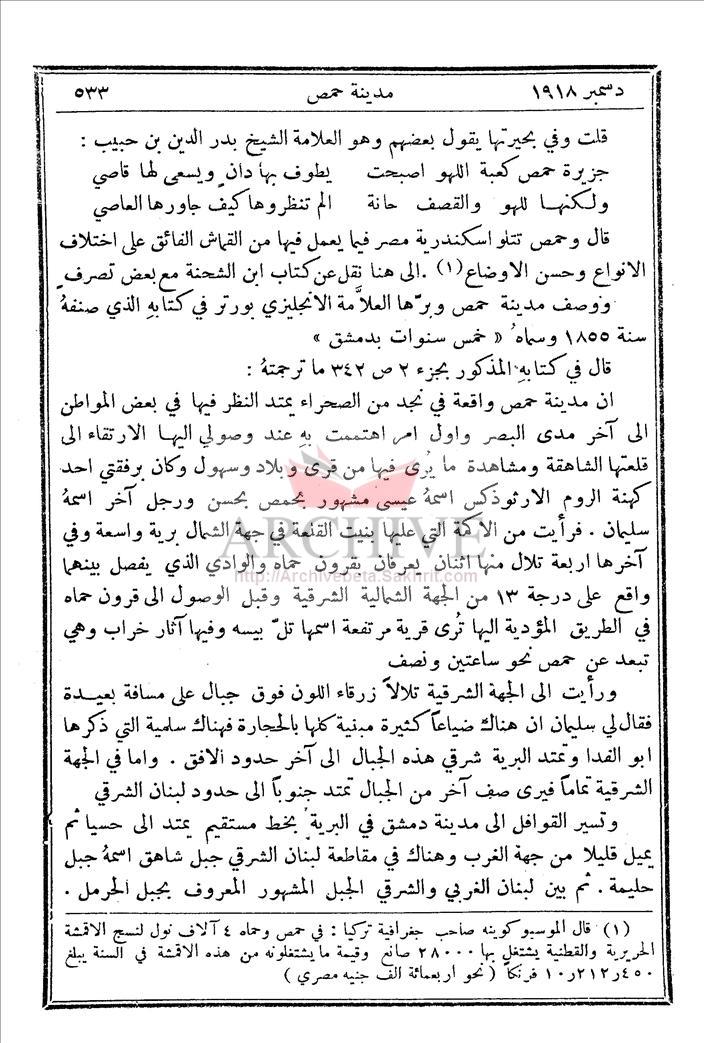 دسمبر ١٩١٨ مدينة حمص ٥٣٣
قلت وفي بحيرتها يقول بعضهم وهو العلامة الشيخ بدر الدين بن حبيب :
جزيرة حمص كعبة اللهو اصبحت يطوف بها دانٍ ويسعى لها قاصي
ولكنها للهو والقصف حانة الم تنظروها كيف جاورها العاصي
قال وحمص تتلو اسكندرية مصر فيما يعمل فيها من القماش الفائق على اختلاف
الانواع وحسن الاوضاع (١) . الى هنا نقل عن كتاب ابن الشحنة مع بعض تصرف
ووصف مدينة حمص وبرّها العلاَّمة الانجليزي بورتر في كتابهِ الذي صنفهُ
سنة ١٨٥٥ وسماهُ « خمس سنوات بدمشق »
قال في كتابهِ المذكور بجزء ٢ ص ٣٤٢ ما ترجمتهُ :
ان مدينة حمص واقعة في نجد من الصحراء يمتد النظر فيها في بعض المواطن
الى آخر مدى البصر واول امر اهتممت بهِ عند وصولي اليها الارتقاء الى
قلعتها الشاهقة ومشاهدة ما يُرى فيها من قرى وبلاد وسهول وكان برفقتي احد
كهنة الروم الارثوذكس اسمهُ عيسى مشهور بحمص بحسن ورجل آخر اسمهُ
سليمان . فرأيت من الاكمة التي عليها بنيت القلعة في جهة الشمال برية واسعة وفي
آخرها اربعة تلال منها اثنان يعرفان بقرون حماه والوادي الذي يفصل بينهما
واقع على درجة ١٣ من الجهة الشمالية الشرقية وقبل الوصول الى قرون حماه
في الطريق المؤدية اليها تُرى قرية مرتفعة اسمها تلّ بيسه وفيها آثار خراب وهي
تبعد عن حمص نحو ساعتين ونصف
ورأيت الى الجهة الشرقية تلالاً زرقاء اللون فوق جبال على مسافة بعيدة
فقال لي سليمان ان هناك ضياعاً كثيرة مبنية كلها بالحجارة فهناك سلمية التي ذكرها
ابو الفدا وتمتد البرية شرقي هذه الجبال الى آخر حدود الافق . واما في الجهة
الشرقية تماماً فيرى صف آخر من الجبال تمتد جنوباً الى حدود لبنان الشرقي
وتسير القوافل الى مدينة دمشق في البرية بخط مستقيم يمتد الى حسيا ثم
يميل قليلا من جهة الغرب وهناك في مقاطعة لبنان الشرقي جبل شاهق اسمهُ جبل
حليمة . ثم بين لبنان الغربي والشرقي الجبل المشهور المعروف بجبل الهرمل .
(١) قال الموسيو كوينه صاحب جغرافية تركيا : في حمص وحماه ٤ آلاف نول لنسج الاقمشة
الحريرية والقطنية يشتغل بها ٢٨٠٠٠ صانع وقيمة ما يشتغلونه من هذه الاقمشة في السنة يبلغ
١٠٫٢١٢٫٤٥٠ فرنكاً ( نحو اربعمائة الف جنيه مصري )
ARCHIVE
http://Archivebeta.Sakhrit.com